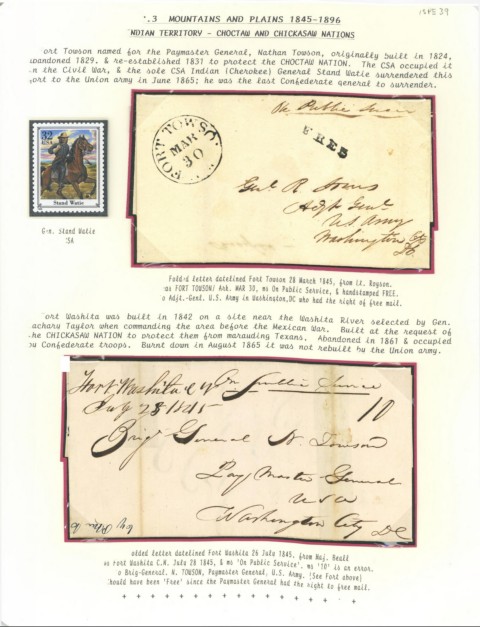 1SPE 39
.3 MOUNTAINS AND PLAINS 1845-1896
NDIAN TERRITORY - CHOCTAW AND CHICKASAW NATIONS
ort Towson named for the Paymaster General, Nathan Towson, originally built in 1824,
abandoned 1829, & re-established 1831 to protect the CHOCTAW NATION. The CSA occupied it
n the Civil War, & the sole CSA Indian (Cherokee) General Stand Watie surrendered this
ort to the Union army in June 1865; he was the last Confederate general to surrender.
On Public Service
FORT TOWSON
MAR
30
FREE
32
USA
Stand Watie
Genl. R Jones
Adjt Genl.
US Army
Washington City
DC
Gen. Stand Watie
CSA
Folded letter datelined Fort Towson 28 March 1845, from Lt. Royson.
as FORT TOWSON/ Ark. MAR 30, ms On Public Service, & handstamped FREE.
o Adjt.-Genl. U.S. Army in Washinton,DC who had the right of free mail.
ort Washita was built in 1842 on a site near the Washita River selected by Gen.
achary Taylor when commanding the area before the Mexican War. Built at the request of
he CHICKASAW NATION to protect them from marauding Texans. Abandoned in 1861 & occupied
by Confederate troops. Burnt down in August 1865 it was not rebuilt by the Union army.
Fort Washita C N On Public Service
July 28 1845
10
Brig General N. Towson
Pay Master General
USA
Washington City DC
olded letter datelined Fort Washita 26 July 1845, from Maj. Beall
ms Fort Washita C.N. July 28 1845, & ms 'On Public Service'. ms '10' is an error.
o Brig-General. N. TOWSON, Paymaster General, U.S. Army. (See Fort above)
hould have been 'Free' since the Paymaster General had the right to free mail.
+ + + + + + + + + + + + + + + +